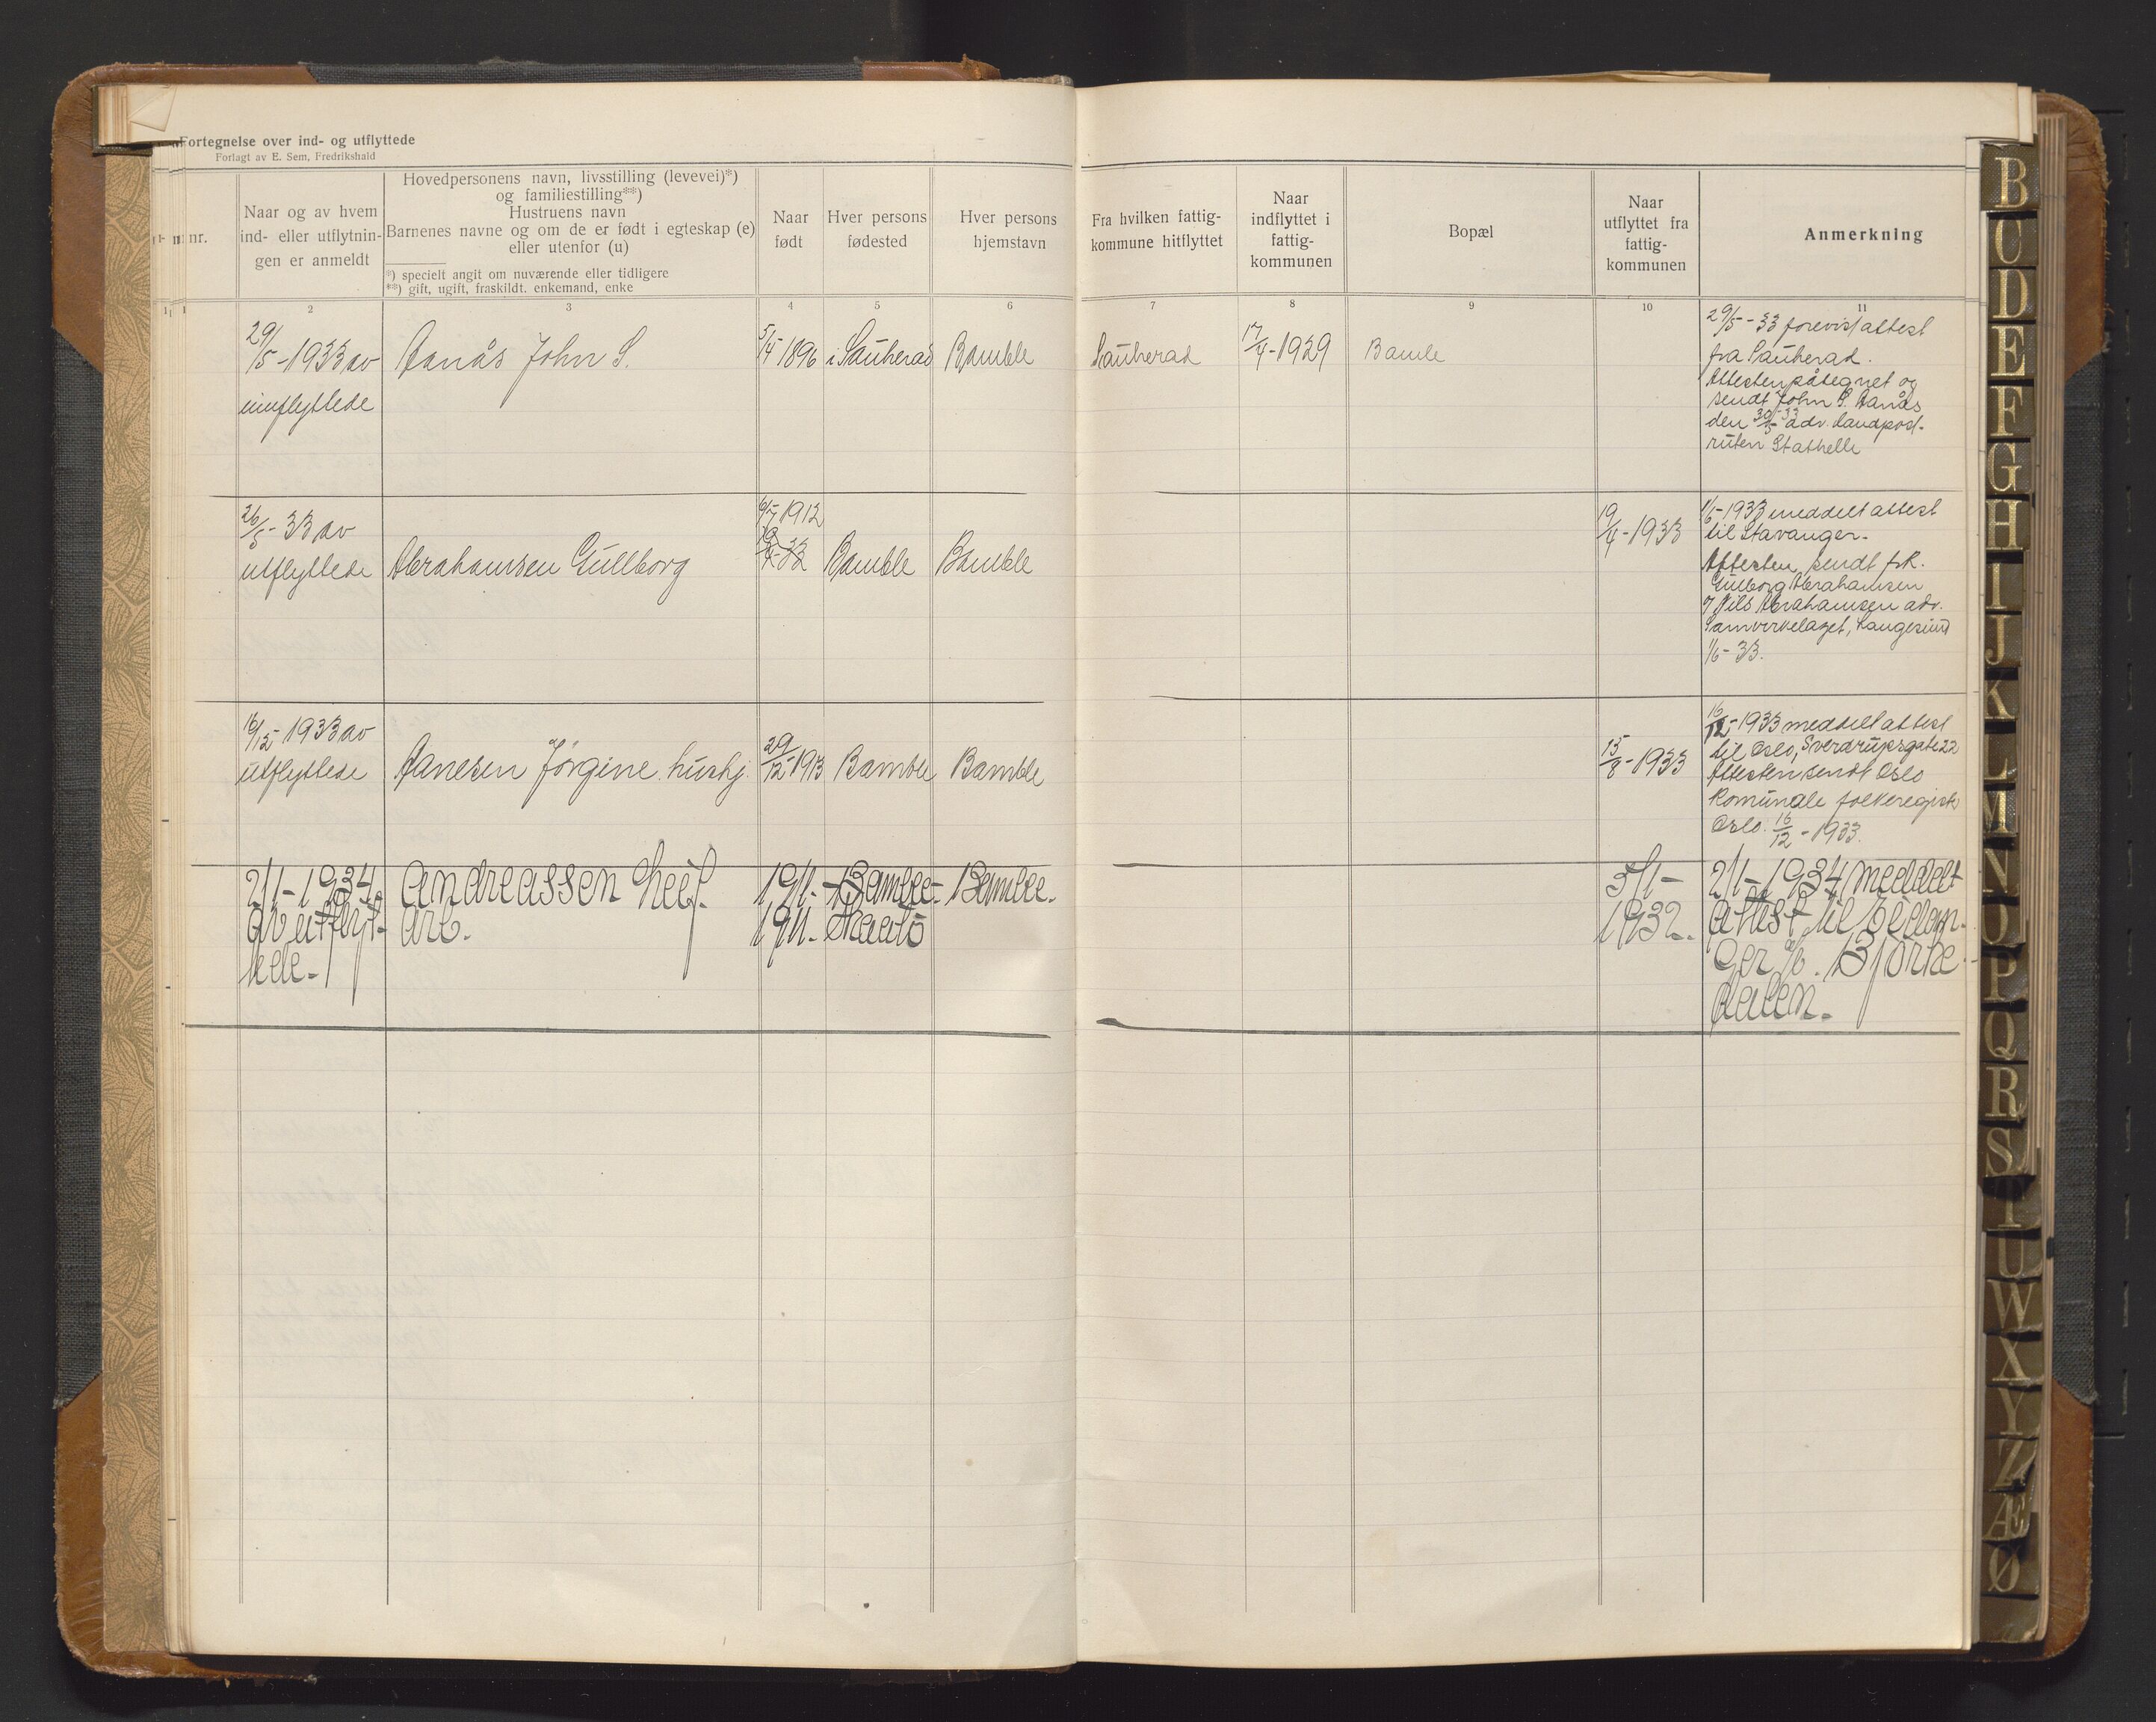 Fortegnelse over ind- og utflyttede
Forlagt av E. Sem, Fredrikshald
nr.
Naar og av hvem
ind- eller utflytnin-
gen er anmeldt
Hovedpersonens navn, livsstilling (levevei)*)
og familiestilling**)
Hustruens navn
Barnenes navne og om de er født i egteskap (e)
eller utenfor (u)
*) specielt angit om nuværende eller tidligere
**) gift, ugift, fraskildt. enkemand, enke
Naar
født
Hver persons
fødested
Hver persons
hjemstavn
Fra hvilken fattig-
kommune hitflyttet
Naar
indflyttet i
fattig-
kommunen
Bopæl
Naar
utflyttet fra
fattig-
kommunen
Anmerkning
1 2 3 4 5 6 7 8 9 10 11
29/5-1933 av
innflyttede
Aanås John S.
5/4 1896
i Sauherad
Bamble
Sauherad
17/4-1929
Bamle
29/5-33 forevist attest
fra Sauherad.
Attesten påtegnet og
sendt John S. Aanås
den 30/5-33 adr. Landpost-
ruten Stathelle
26/5-33 av
utflyttede
Abrahamsen Gullborg
6/7 1912
19/4-33
Bamble
Bamble
19/4-1933
1/6-1933 meddelt attest
til Stavanger.
Attesten sendt frk.
Gullborg Abrahamsen
Nils Abrahamsen adr.
Samvirkelaget, Langesund
1/6-33.
16/12-1933 av
utflyttede
Aanesen Jørgine hushj.
29/12-1913
Bamble
Bamble
15/8-1933
16/12-1933 meddelt attest
til Oslo, Sverdrupsgate 22
Attesten sendt Oslo
Komunale folkeregister
Oslo 16/12-1933.
2/1-1934
av utflyt-
tede.
Andreassen Leif.
Arb.
1911.
1911.
Bamble
Bamble.
5/1-
1932.
2/1-1934 meddelt
attest til Eidan-
ger p/b. Bjørke-
dalen.
B
C
D
E
F
G
H
I
J
K
L
M
N
O
P
Q
R
S
T
U
W
X
Y
Z
Æ
Ø